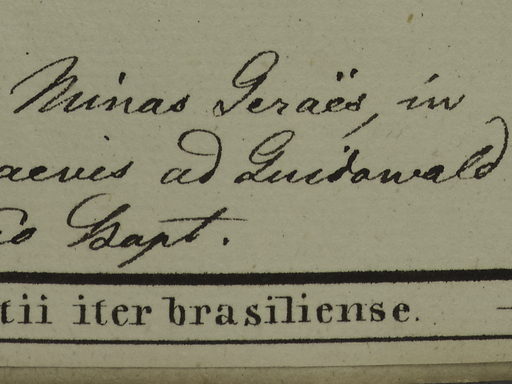 Minas Geraës, in
aevis ad Guidowald
o Bapt.
tii iter brasiliense.